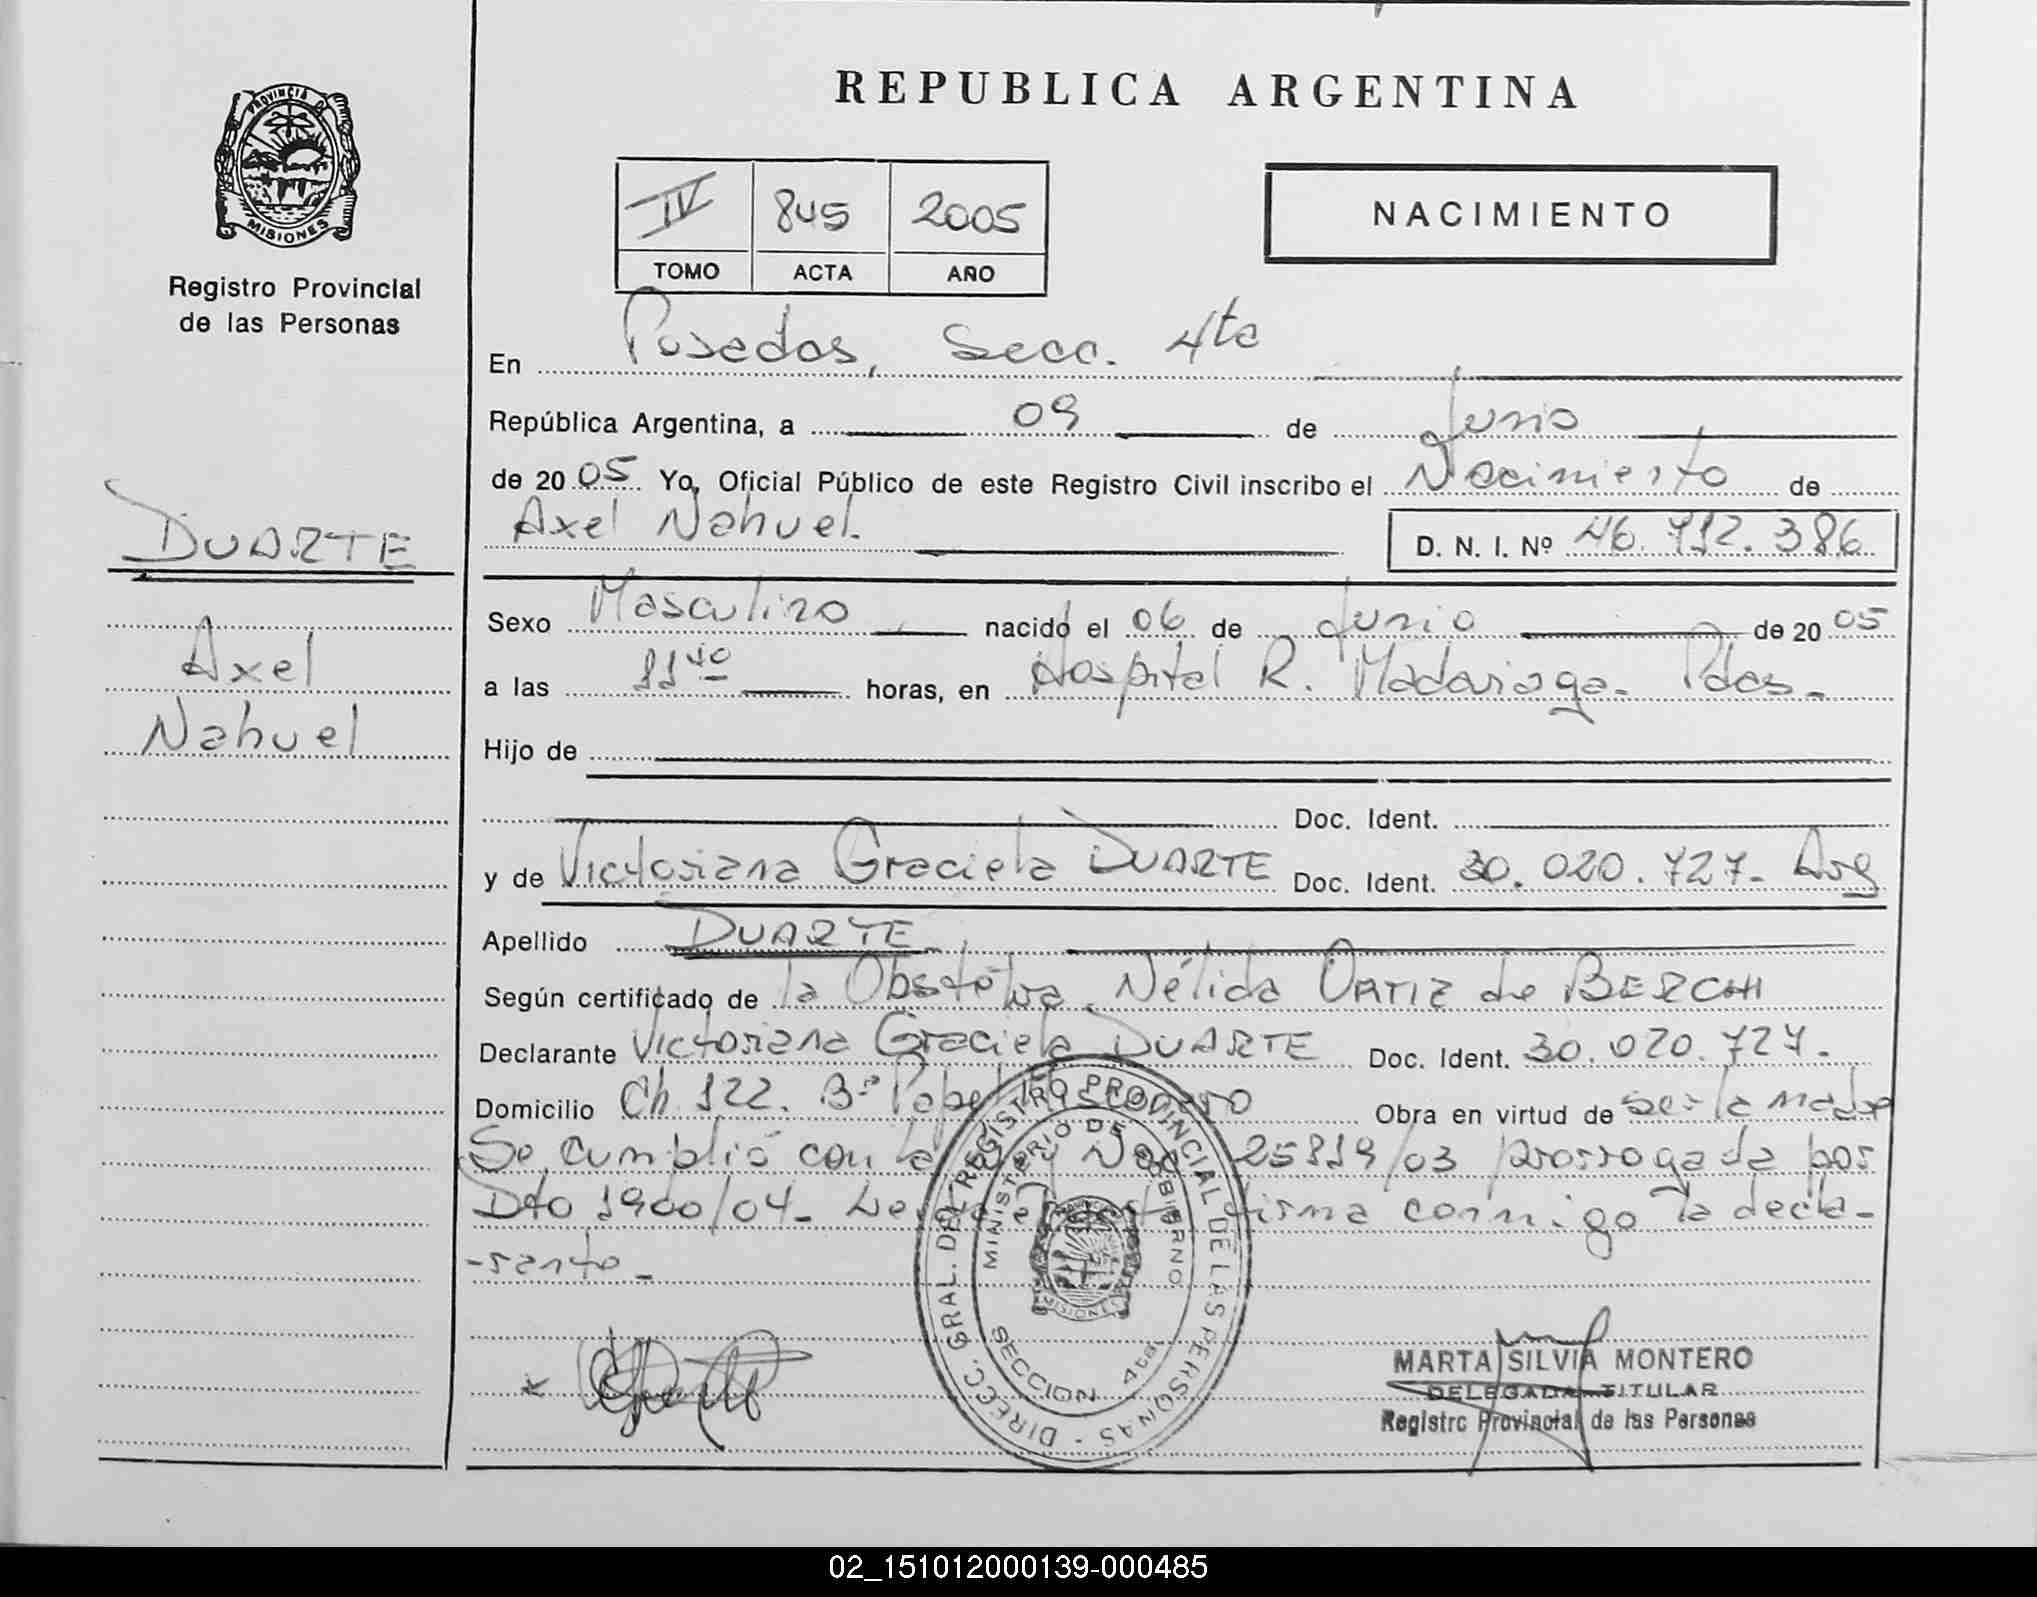 PROVINCIA DE
MISIONES
Registro Provincial
de las Personas
DUARTE
Axel
Nahuel
REPUBLICA ARGENTINA
IV 845 2005
TOMO ACTA AÑO
NACIMIENTO
En Posadas, Secc. 4ta
República Argentina, a 09 de Junio
de 20 05 Yo, Oficial Público de este Registro Civil inscribo el Nacimiento de
Axel Nahuel. D. N. I. Nº 46.712.386
Sexo Masculino nacido el 06 de Junio de 20 05
a las 11 40 horas, en Hospital R. Madariaga. Pdas.
Hijo de
Doc. Ident.
y de Victoriana Graciela DUARTE Doc. Ident. 30.020.727. Arg
Apellido DUARTE
Según certificado de la Obstétra. Nélida ORTIZ de BERCHI
Declarante Victoriana Graciela DUARTE Doc. Ident. 30.020.727.
Domicilio Ch. 122. Bº Obra en virtud de ser la madre
Se cumplió con la Ley Nac 25819/03 prorrogada por
Dto 1900/04. firma conmigo la decla-
-rante.
DIREC. GRAL. DEL REGISTRO PROVINCIAL DE LAS PERSONAS
MINISTERIO DE GOBIERNO
MISIONES
SECCION 4ta.
MARTA SILVIA MONTERO
DELEGADA TITULAR
Registro Provincial de las Personas
02_151012000139-000485